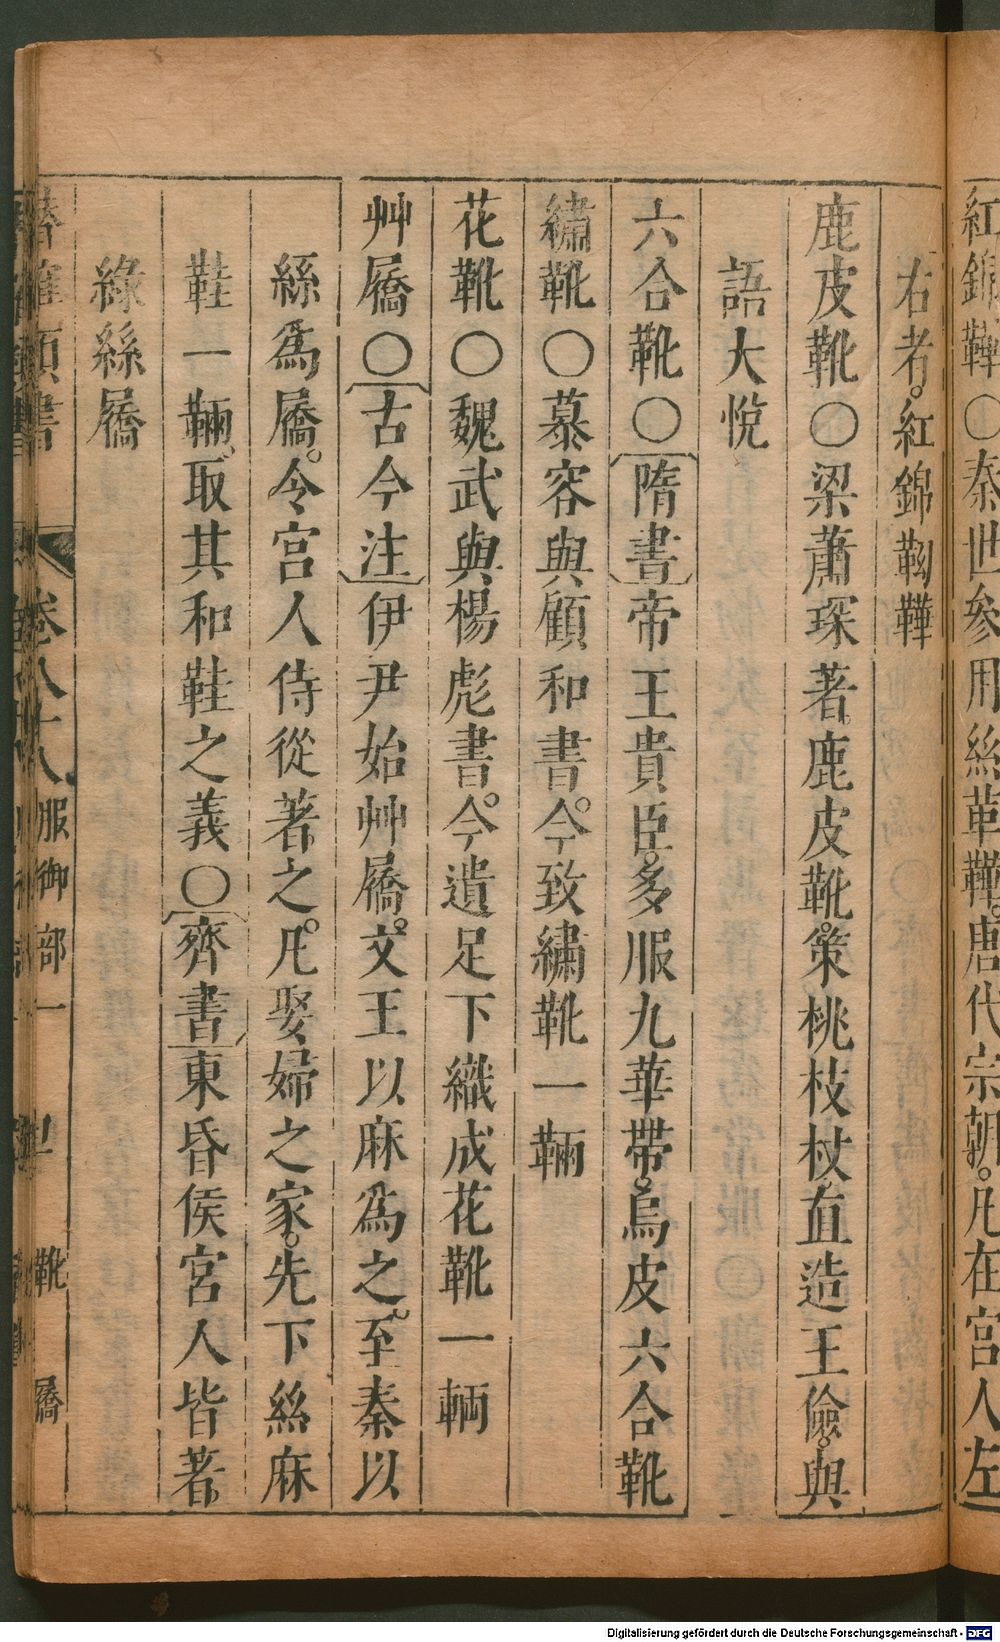 紅錦鞾○秦世參用絲革鞾。唐代宗朝。凡在宮人左
右者。紅錦靿鞾
鹿皮靴○梁蕭琛著鹿皮靴。策桃枝杖。直造王儉。與
語大悅
六合靴○隋書帝王貴臣。多服九華帶。烏皮六合靴
繡靴○慕容與顧和書。今致繡靴一輛
花靴○魏武與楊彪書。今遺足下織成花靴一輌
艸屩○古今注伊尹始艸屩。文王以麻爲之。至秦以
絲爲屩。令宮人侍從著之。凡娶婦之家。先下絲麻
鞋一輛。取其和鞋之義○齊書東昏侯宮人皆著
綠絲屩
卷八十八 服御部一 靴 屩
Digitalisierung gefördert durch die Deutsche Forschungsgemeinschaft - DFG